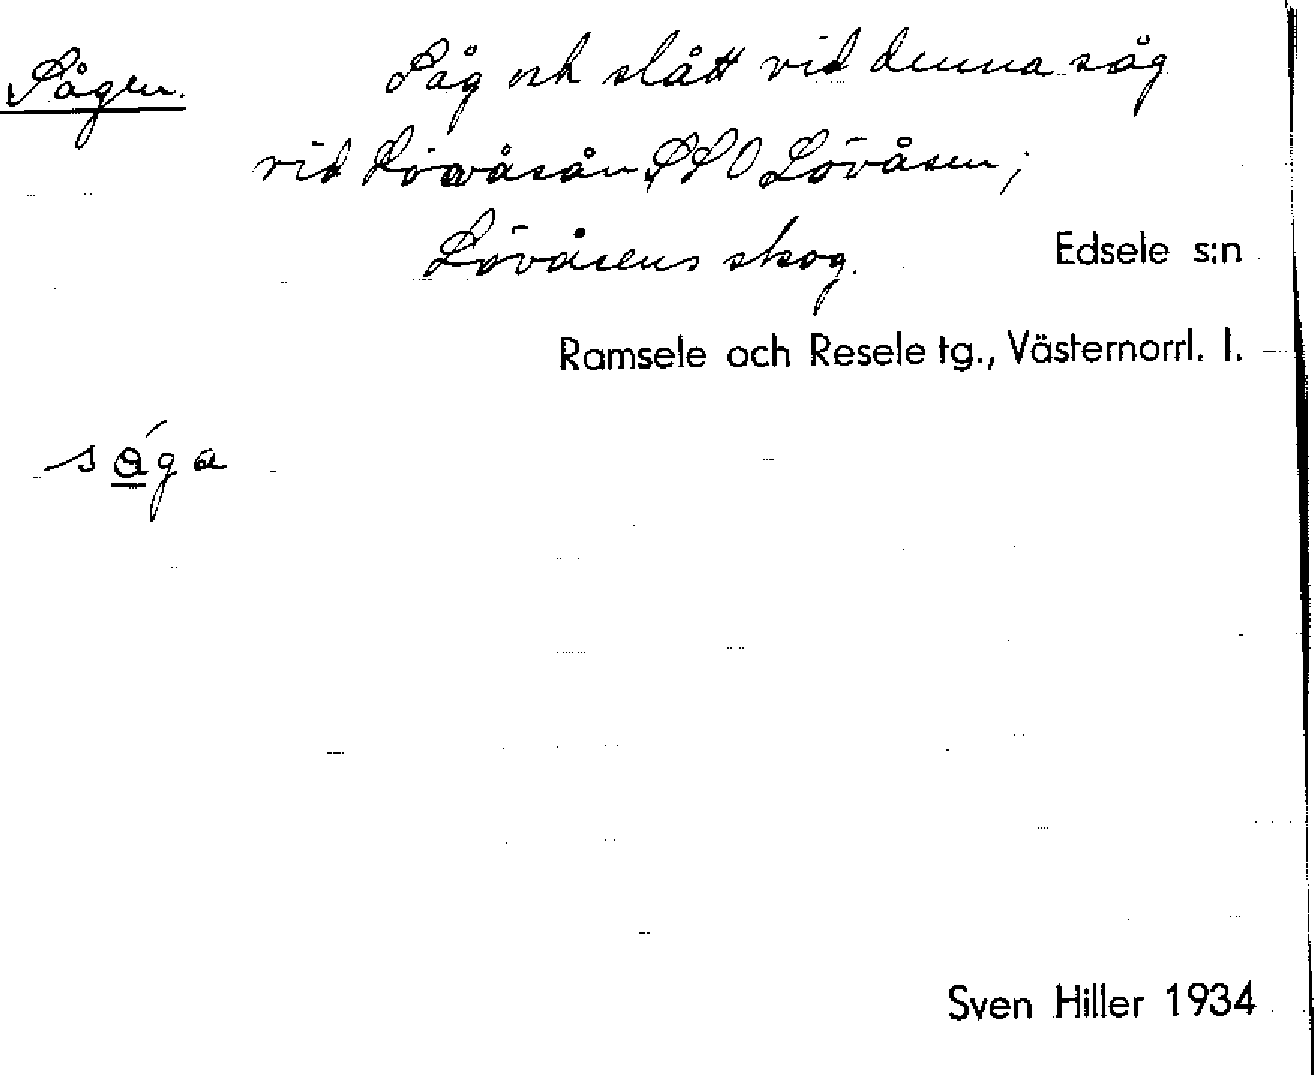 Sågen. Såg och slått vid denna såg
vid Lövåsån, SSO Lövåsen;
Lövåsens skog. Edsele s:n
Ramsele och Resele tg., Västernorrl. l.
ság a
Sven Hiller 1934